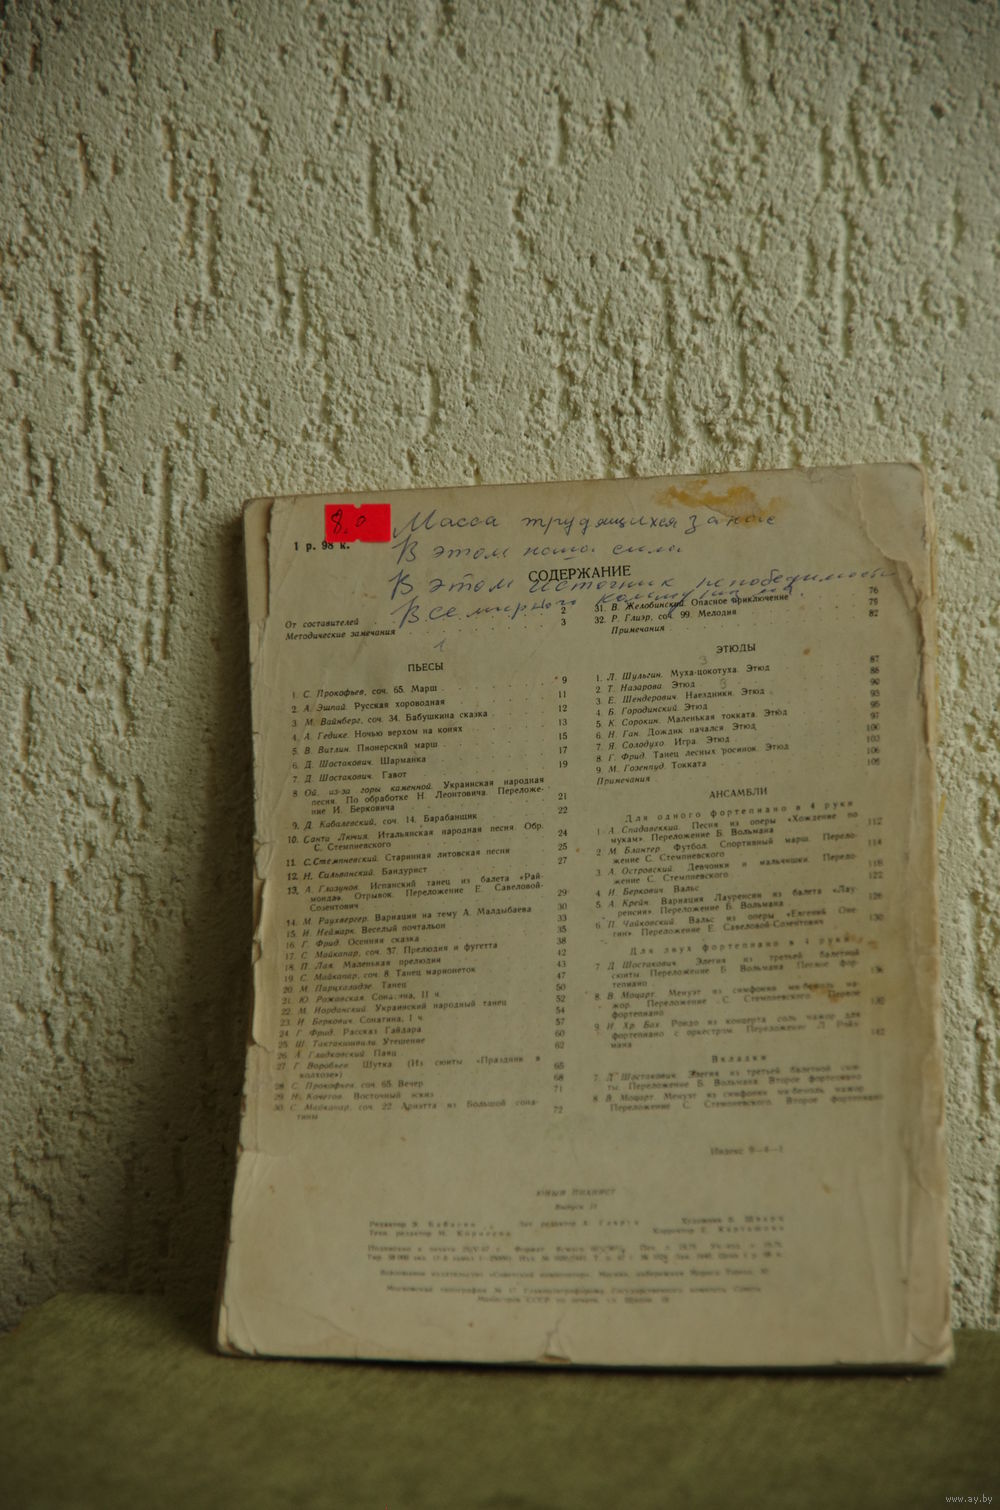 8.0
1 р. 98 к.
Масса трудящихся за нас
В этом наша сила
В этом источник непобедимости
Всемирного коммунизма.
СОДЕРЖАНИЕ
От составителей . 2
Методические замечания 3
1
ПЬЕСЫ
1. С. Прокофьев, соч. 65. Марш 9
2. А. Эшпай. Русская хороводная 11
3. М. Вайнберг, соч. 34. Бабушкина сказка 12
4. А. Гедике. Ночью верхом на конях 13
5. В. Витлин. Пионерский марш 15
6. Д. Шостакович. Шарманка 17
7. Д. Шостакович. Гавот 19
8 Ой, из-за горы каменной. Украинская народная
песня. По обработке Н. Леонтовича. Переложе-
ние И. Берковича 21
9. Д. Кабалевский, соч. 14. Барабанщик 22
10. Санта Лючия. Итальянская народная песня. Обр.
С. Стемпневского 24
11. С. Стемпневский. Старинная литовская песня 25
12. Н. Сильванский. Бандурист 27
13. А. Глазунов. Испанский танец из балета «Рай-
монда». Отрывок. Переложение Е. Савеловой-
Созентович 29
14. М. Раухвергер. Вариации на тему А. Малдыбаева 30
15. И. Неймарк. Веселый почтальон 33
16. Г. Фрид. Осенняя сказка 35
17. С. Майкапар, соч. 37. Прелюдия и фугетта 38
18. П. Лая. Маленькая прелюдия 42
19. С. Майкапар, соч. 8. Танец марионеток 43
20. М. Парцхаладзе. Танец 47
21. Ю. Рожавская. Сонатина, II ч. 50
22. М. Иорданский. Украинский народный танец 52
23. И. Беркович. Сонатина, I ч. 54
24. Г. Фрид. Рассказ Гайдара 57
25. Ш. Тактакишвили. Утешение 60
26. А. Гладковский. Паяц 62
27 Г. Воробьев. Шутка (Из сюиты «Праздник в
колхозе») 65
28. С. Прокофьев, соч. 65. Вечер 68
29. Н. Кочетов. Восточный эскиз 71
30. С. Майкапар, соч. 22. Ариэтта из Большой сона-
тины 72
31. В. Желобинский. Опасное приключение 76
32. Р. Глиэр, соч. 99. Мелодия 79
Примечания 82
ЭТЮДЫ
1. Л. Шульгин. Муха-цокотуха. Этюд 87
2. Т. Назарова. Этюд 88
3. Е. Шендерович. Наездники. Этюд 90
4. Б. Городинский. Этюд 93
5. К. Сорокин. Маленькая токката. Этюд 95
6. Н. Ган. Дождик начался. Этюд 97
7. Я. Солодухо. Игра. Этюд 100
8. Г. Фрид. Танец лесных росинок. Этюд 103
9. М. Гозенпуд. Токката 106
Примечания 108
АНСАМБЛИ
Для одного фортепиано в 4 руки
1 А. Спадавеккиа. Песня из оперы «Хождение по
мукам». Переложение Б. Вольмана 112
2 М. Блантер. Футбол. Спортивный марш. Перело-
жение С. Стемпневского 114
3 А. Островский. Девчонки и мальчишки. Перело-
жение С. Стемпневского 118
4 И. Беркович. Вальс 122
5. А. Крейн. Вариация Лауренсии из балета «Лау-
ренсия». Переложение Б. Вольмана 126
6 П. Чайковский. Вальс из оперы «Евгений Оне-
гин». Переложение Е. Савеловой-Созентович 130
Для двух фортепиано в 4 руки
7 Д. Шостакович. Элегия из третьей балетной
сюиты. Переложение Б. Вольмана. Первое фор-
тепиано
8. В. Моцарт. Менуэт из симфонии ми-бемоль ма-
жор. Переложение С. Стемпневского. Первое
фортепиано
9 И. Хр. Бах. Рондо из концерта соль мажор для
фортепиано с оркестром. Переложение Л. Ройз-
мана 142
Вкладки
7. Д. Шостакович. Элегия из третьей балетной сюи-
ты. Переложение Б. Вольмана. Второе фортепиано
8 В. Моцарт. Менуэт из симфонии ми-бемоль мажор.
Переложение С. Стемпневского. Второе фортепиано
Индекс 9—4—1
ЮНЫЙ ПИАНИСТ
Выпуск II
www.ay.by